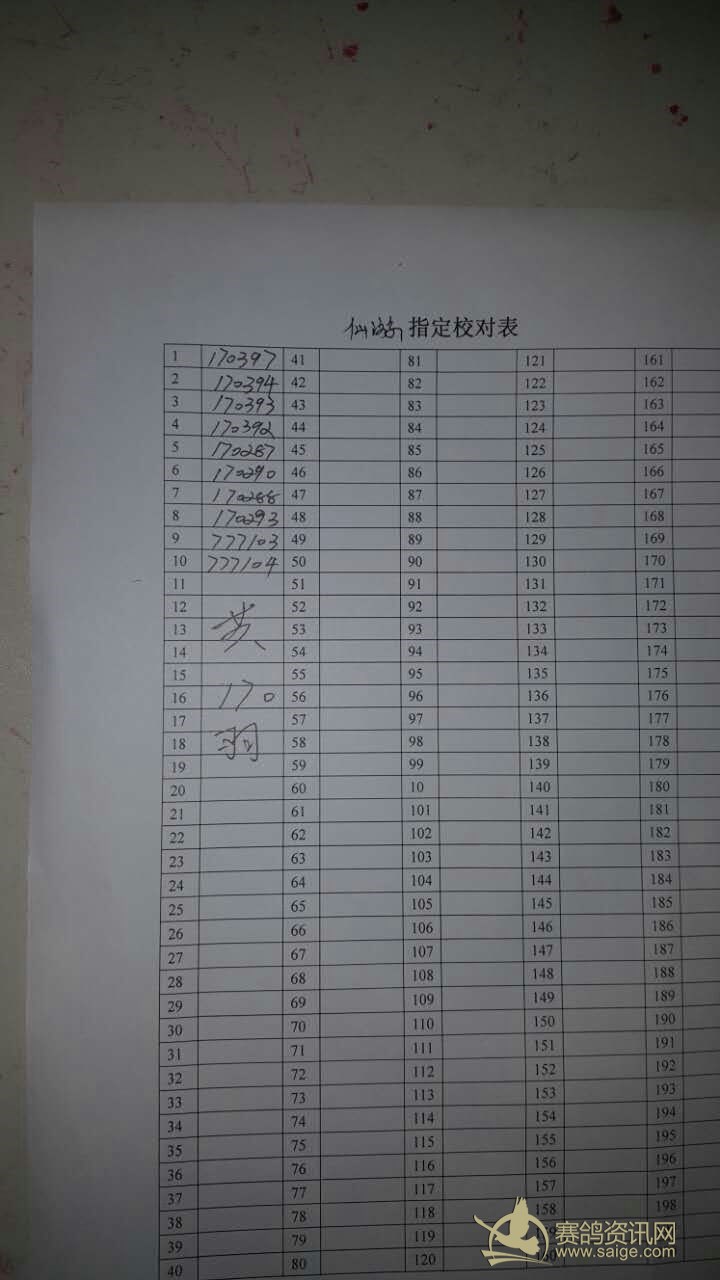 仙游 指定校对表
1 170397 41 81 121 161
2 170394 42 82 122 162
3 170393 43 83 123 163
4 170392 44 84 124 164
5 170287 45 85 125 165
6 170290 46 86 126 166
7 170288 47 87 127 167
8 170293 48 88 128 168
9 777103 49 89 129 169
10 777104 50 90 130 170
11 51 91 131 171
12 52 92 132 172
13 黄 53 93 133 173
14 54 94 134 174
15 55 95 135 175
16 170 56 96 136 176
17 57 97 137 177
18 羽 58 98 138 178
19 59 99 139 179
20 60 10 140 180
21 61 101 141 181
22 62 102 142 182
23 63 103 143 183
24 64 104 144 184
25 65 105 145 185
26 66 106 146 186
27 67 107 147 187
28 68 108 148 188
29 69 109 149 189
30 70 110 150 190
31 71 111 151 191
32 72 112 152 192
33 73 113 153 193
34 74 114 154 194
35 75 115 155 195
36 76 116 156 196
37 77 117 157 197
38 78 118 158 198
39 79 119
40 80 120
赛鸽资讯网
www.saige.com